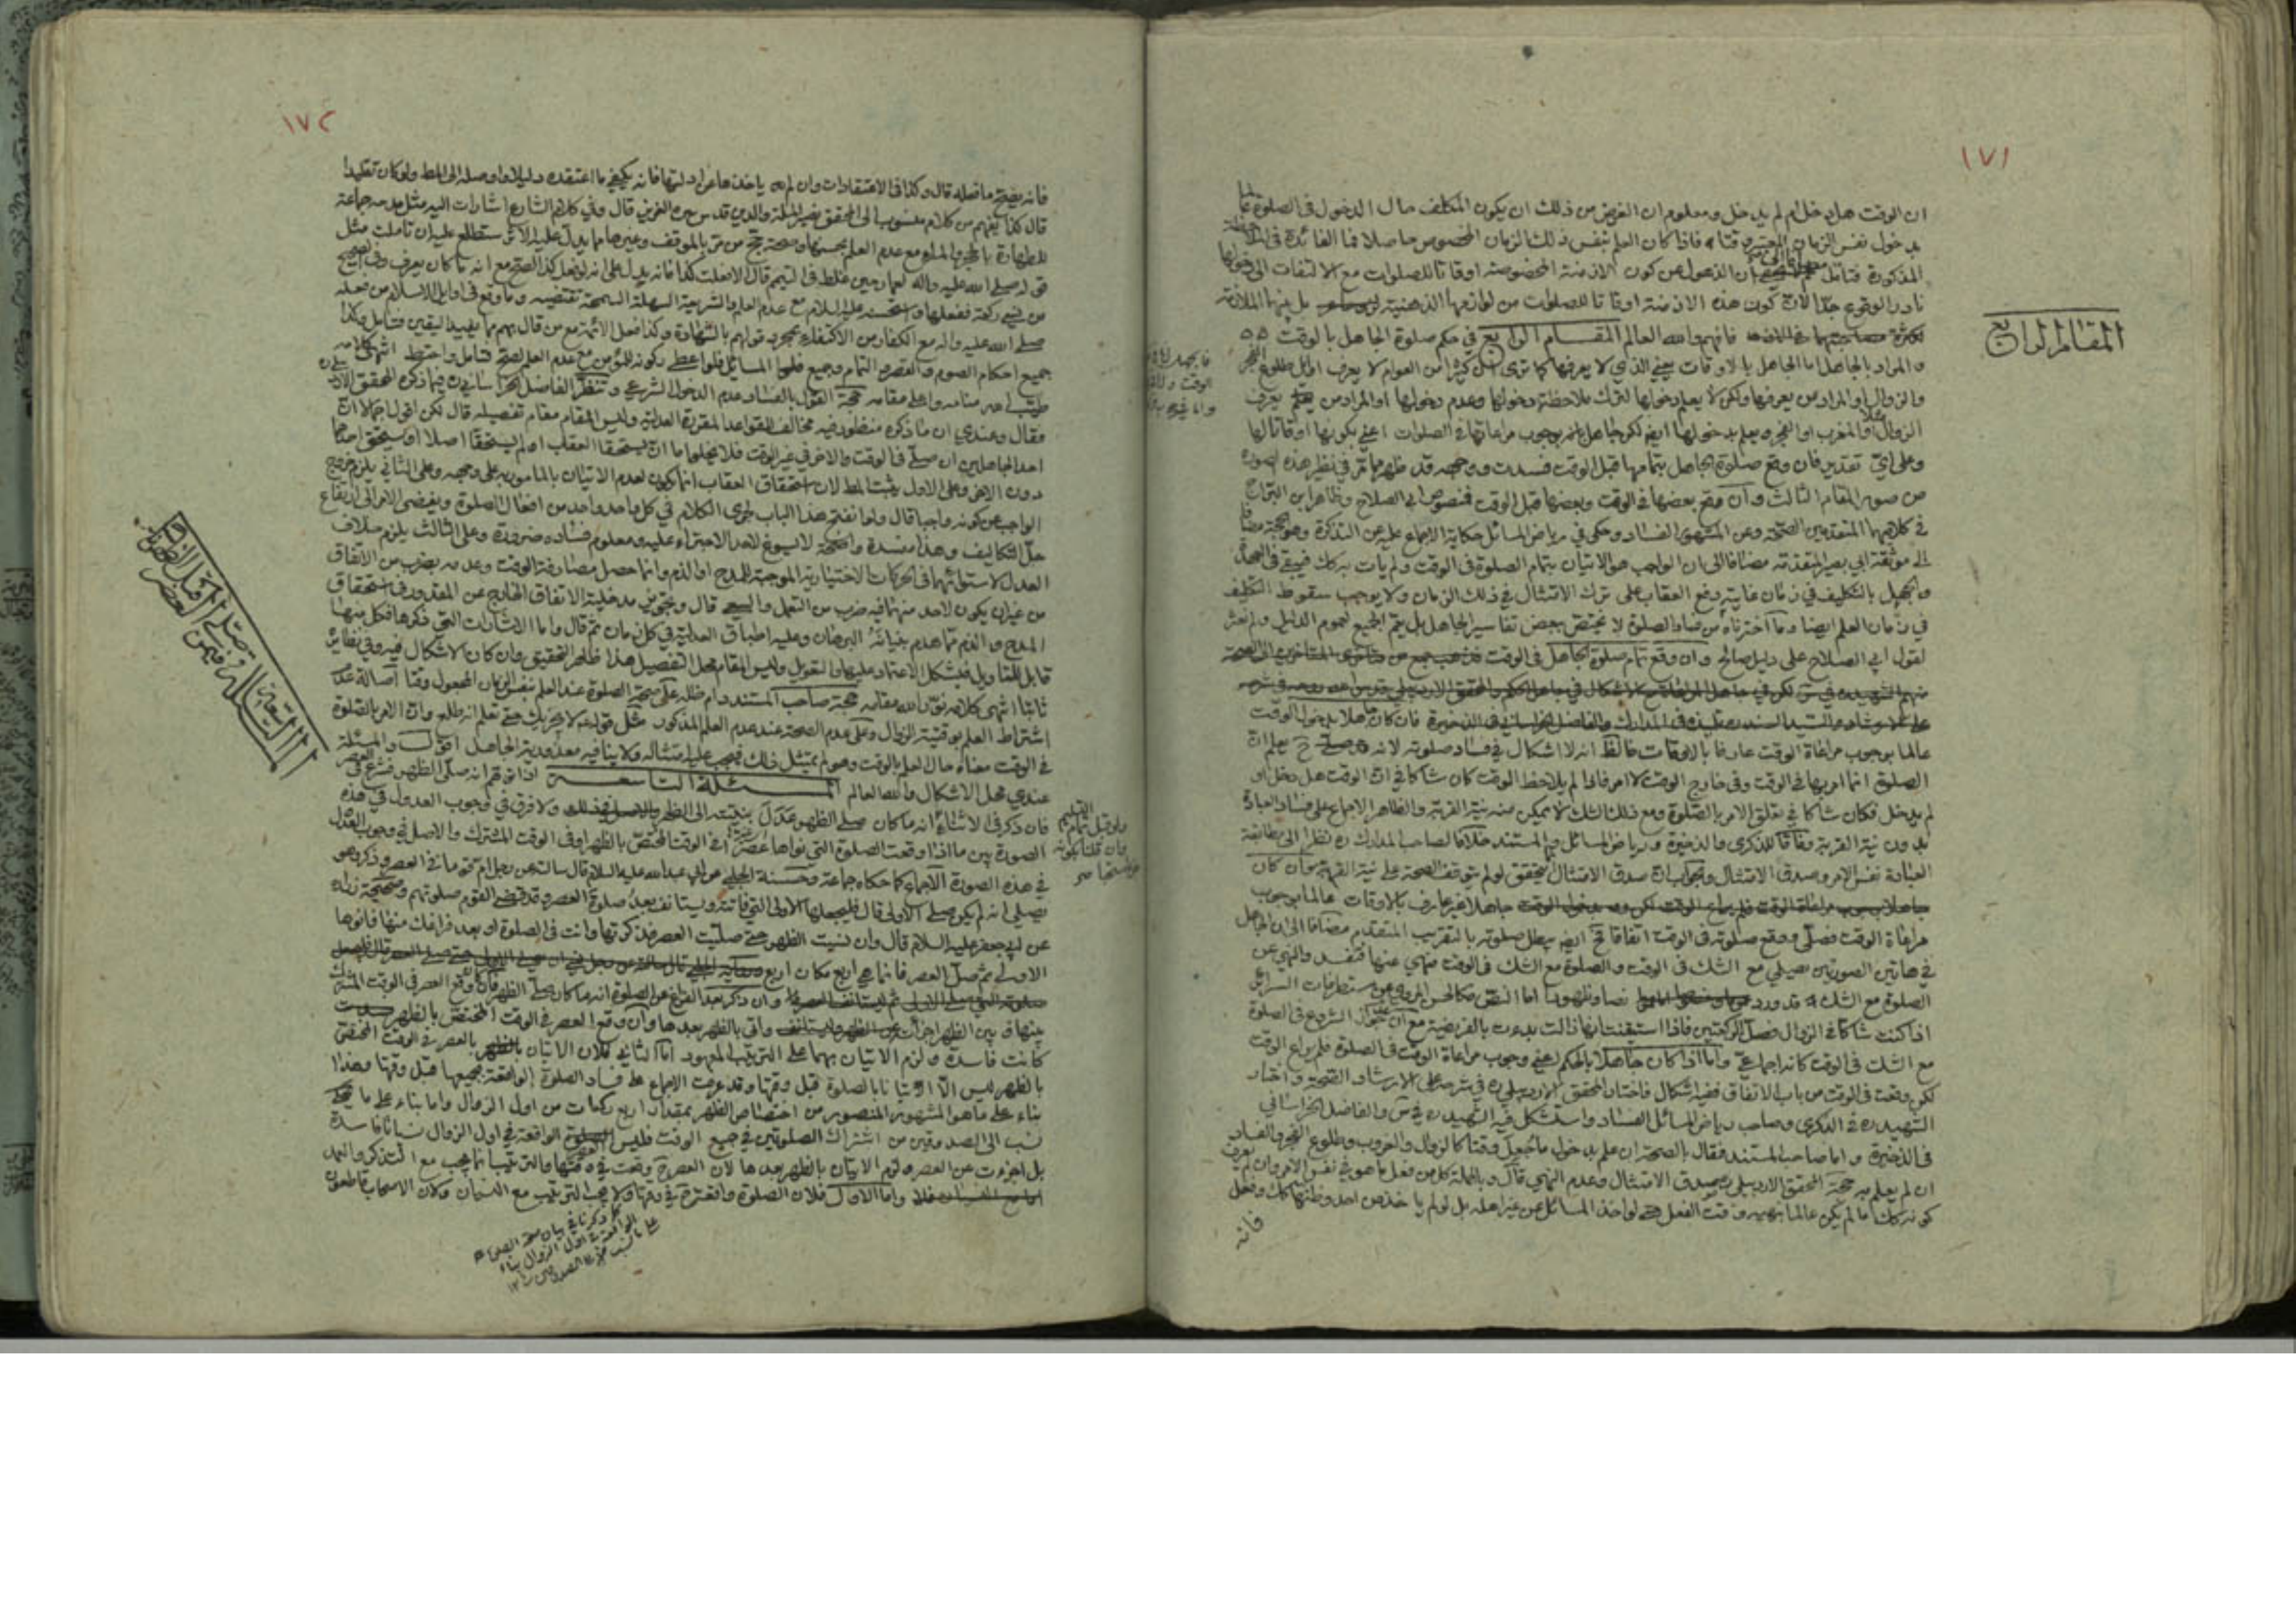 ١٧١
ان الوقت هل دخل ام لم يدخل ومعلوم ان الغرض من ذلك ان يكون المكلف حال الدخول في الصلوة عالما
بدخول نفس الزمان المعتبر وقتا فاذا كان العلم بنفس ذلك الزمان المخصوص حاصلا فما الفائدة في
المذكورة فتامل ان الذهول عن كون الازمنة المخصوصة اوقاتا للصلوات مع الالتفات الى دخولها
نادر الوقوع جدّا لانّ كون هذه الازمنة اوقاتا للصلوات من لوازمها الذهنية بل بينهما الملازمة
فافهم والله العالم المقام الرابع في حكم صلوة الجاهل بالوقت
المقام الرابع
والمراد بالجاهل اما الجاهل بالاوقات يعني الذي لا يعرفها كما ترى ان كثيرا من العوام لا يعرف اوائل طلوع الفجر
والزوال او المراد من يعرفها ولكن لا يعلم دخولها لترك ملاحظة دخولها وعدم دخولها او المراد من يعرف
الزوال او المغرب او الفجر ويعلم بدخولها ايضا لكن جاهل بوجوب مراعاتها في الصلوات اعني بكونها اوقاتا لها
وعلى ايّ تقدير فان وقع صلوة الجاهل بتمامها قبل الوقت فسدت ووجهه قد ظهر مما مرّ في نظير هذه الصورة
من صور المقام الثالث وان وقع بعضها في الوقت وبعضها قبل الوقت فنصوص ابي الصلاح وظاهر ابن البراج
في كلامهما المتقدمين الصحة وعن المشهور الفساد وحكى في رياض المسائل حكاية الاجماع عليه عن التذكرة وهو الحجة مضافا
الى موثقة ابي بصير المتقدمة مضافا الى ان الواجب هو الاتيان بتمام الصلوة في الوقت ولم يات به فيبقى في العهدة
والجهل بالتكليف في زمان غايته رفع العقاب على ترك الامتثال في ذلك الزمان ولا يوجب سقوط التكليف
في زمان العلم ايضا وما اخترناه من فساد الصلوة لا يختص ببعض تفاسير الجاهل بل يعم الجميع لعموم الدليل ولم نعثر
لقول ابي الصلاح على دليل صالح وان وقع تمام صلوة الجاهل في الوقت
فان كان جاهلا بدخول الوقت
عالما بوجوب مراعاة الوقت عارفا بالاوقات فالظ انه لا اشكال في فساد صلوته لانه
الصلوة انما امر بها في الوقت وفي خارج الوقت لا امر فاذا لم يلاحظ الوقت كان شاكا في ان الوقت هل دخل او
لم يدخل فكان شاكا في تعلق الامر بالصلوة ومع ذلك الشك لا يتمكن منه نية القربة والظاهر الاجماع على فساد العبادة
بدون نية القربة وفاقا للذكرى والذخيرة ورياض المسائل والمستند خلافا لصاحب المدارك ره نظرا الى مطابقة
العبادة نفس الامر وصدق الامتثال والجواب انّ صدق الامتثال يتحقق لو لم يتوقف الصحة على نية القربة وان كان
جاهلا غير عارف بالاوقات عالما بوجوب
مراعاة الوقت فصلّى ووقع صلوته في الوقت اتفاقا فح ايضا يبطل صلوته بالتقريب المتقدم مضافا الى ان الجاهل
في هاتين الصورتين يصلي مع الشك في الوقت والصلوة مع الشك في الوقت منهي عنها فتفسد والنهي عن
الصلوة مع الشك قد ورد نصا وظهورا اما النص فكالخبر المروي عن مستطرفات السرائر
اذا كنت شاكا في الزوال فصلّ الركعتين فاذا استيقنت انها زالت بدءت بالفريضة مع ان عدم جواز الشروع في الصلوة
مع الشك في الوقت كانه اجماعي واما اذا كان جاهلا بالحكم اعني وجوب مراعاة الوقت في الصلوة فلم يراع الوقت
لكن وقعت في الوقت من باب الاتفاق ففيه اشكال فاختار المحقق الاردبيلي ره في شرحه على الارشاد الصحة واختار
الشهيد ره في الذكرى وصاحب رياض المسائل الفساد واستشكل فيه الشهيد ره في س والفاضل الخراساني
في الذخيرة واما صاحب المستند فقال بالصحة ان علم بدخول ما جعل وقتا كالزوال والغروب وطلوع الفجر والفساد
ان لم يعلم به حجة المحقق الاردبيلي ره صدق الامتثال وعدم النهي قال وبالجملة كل من فعل ما هو في نفس الامر وان لم يعرف
كونه كذلك ما لم يكن عالما بنهيه وقت الفعل حتى لو اخذ المسائل عن غير اهله بل لو لم ياخذ من احد وظنها كك وفعل
فانه
١٧٢
فانه يصحّ ما فعله قال وكذا في الاعتقادات وان لم ياخذها عن ادلتها فانه يكفي ما اعتقده دليلا واوصله الى المط ولو كان تقليدا
قال كذا يفهم من كلام منسوب الى المحقق نصير الملة والدين قدس سره العزيز قال وفي كلام الشارع اشارات اليه مثل مدحه جماعة
للطهارة بالحجر والماء مع عدم العلم بحسنها وصحة حج من مرّ بالموقف وغيرها مما يدلّ عليه الاثر ستطلع عليه ان تاملت مثل
قوله صلى الله عليه واله لعمار حين غلط في التيمم قال الا فعلت كذا فانه يدل على انه لو فعل كذا لصح مع انه ما كان يعرف وفي الصحيح
من نسي ركعة ففعلها واستحسنه عليه السلام مع عدم العلم والشريعة السهلة السمحة تقتضيه وما وقع في اوايل الاسلام من فعله
صلى الله عليه واله مع الكفار من الاكتفاء بمجرد قولهم بالشهادة وكذا فعل الائمة مع من قال بهم مما يفيد اليقين فتامل وكذا
جميع احكام الصوم والقصر والتمام وجميع المسائل فلو اعطى زكوته للمؤمن مع عدم العلم لصح فتامل واحتط انتهى كلامه
طيّب الله منامه واعلى مقامه حجة القول بالفساد عدم الدخول الشرعي وتنظّر الفاضل الخراساني ره فيما ذكره المحقق الاردبيلي ره
فقال وعندي ان ما ذكره منظور فيه مخالف للقواعد المقررة العدلية وليس المقام مقام تفصيله قال لكن اقول اجمالا انّ
احد الجاهلين ان صلّى في الوقت والاخر في غير الوقت فلا يخلو اما ان يستحقا العقاب او لم يستحقا اصلا او يستحق احدهما
دون الاخر وعلى الاول يثبت المط لان استحقاق العقاب انما يكون لعدم الاتيان بالمامور به على وجهه وعلى الثاني يلزم خروج
الواجب عن كونه واجبا قال ولو انفتح هذا الباب لجرى الكلام في كل واحد واحد من افعال الصلوة ويفضي الامر الى ارتفاع
جلّ التكاليف وهذا مفسدة واضحة لا يسوغ لاحد الاجتراء عليه ومعلوم فساده ضرورة وعلى الثالث يلزم خلاف
العدل لاستوائهما في الحركات الاختيارية الموجبة للمدح او الذم وانما حصل مصادفة الوقت وعدمه بضرب من الاتفاق
من غير ان يكون لاحد منهما فيه ضرب من التعمل والسعي قال وتجويز مدخلية الاتفاق الخارج عن المقدور في استحقاق
المدح والذم مما هدم بنيانه البرهان وعليه اطباق العدلية في كل زمان ثم قال واما الاشارات التي ذكرها فكل منها
قابل للتاويل فيشكل الاعتماد عليها والتعويل وليس المقام محل التفصيل هذا ظاهر التحقيق وان كان الاشكال فيه وفي نظايره
ثابتا انتهى كلامه نوّر الله مقامه حجة صاحب المستند دام ظله على صحة الصلوة عند العلم بنفس الزمان المجعول وقتا اصالة عدم
اشتراط العلم بوقتية الزوال وعلى عدم الصحة عند عدم العلم المذكور مثل قوله لا يجزيك حتى تعلم انه طلع وان الامر بالصلوة
في الوقت معناه حال العلم بالوقت وهو لم يمتثل ذلك فيجب عليه امتثاله ولا ينافيه معذورية الجاهل اقول والمسئلة
عندي محل الاشكال والله العالم المسئلة التاسعة اذا توهم انه صلّى الظهر فشرع في العصر
فان ذكر في الاثناء انه ما كان صلى الظهر عدل بنيته الى الظهر ولا فرق في وجوب العدول في هذه
الصورة بين ما اذا وقعت الصلوة التي نواها عصرا في الوقت المختص بالظهر او في الوقت المشترك والاصل في وجوب العدول
في هذه الصورة الاجماع كما حكاه جماعة وحسنة الحلبي عن ابي عبد الله عليه السلام قال سالته عن رجل ام قوما في العصر فذكر وهو
يصلي انه لم يكن صلى الاولى قال فليجعلها الاولى التي فاتته ويستانف بعد صلوة العصر وقد قضى القوم صلوتهم وصحيحة زرارة
عن ابي جعفر عليه السلام قال وان نسيت الظهر حتى صليت العصر فذكرتها وانت في الصلوة او بعد فراغك منها فانوها
الاولى ثم صل العصر فانما هي اربع مكان اربع
وان ذكر بعد الفراغ عن الصلوة انه ما كان صلى الظهر فان وقع العصر في الوقت المشترك
بينها وبين الظهر اجزأت واتى بالظهر بعدها وان وقع العصر في الوقت المختص بالظهر
كانت فاسدة ولزم الاتيان بهما على الترتيب المعهود اما الثاني فلان الاتيان بالعصر في الوقت المختص
بالظهر ليس الّا اتيانا بالصلوة قبل وقتها وقد عرفت الاجماع على فساد الصلوة الواقعة بجميعها قبل وقتها وهذا
بناء على ما هو المشهور المنصور من اختصاص الظهر بمقدار اربع ركعات من اول الزوال واما بناء على ما يحكى
نسب الى الصدوقين من اشتراك الصلوتين في جميع الوقت فليس العصر الواقعة في اول الزوال نسيانا فاسدة
بل اجزءت عن العصر ولزم الاتيان بالظهر بعدها لان العصر ح وقعت في وقتها والترتيب انما يجب مع التذكر والعمد
واما الاول فلان الصلوة واقعة ح في وقتها ولا يجب الترتيب مع النسيان ولان الاصحاب قاطعون
المسئلة التاسعة